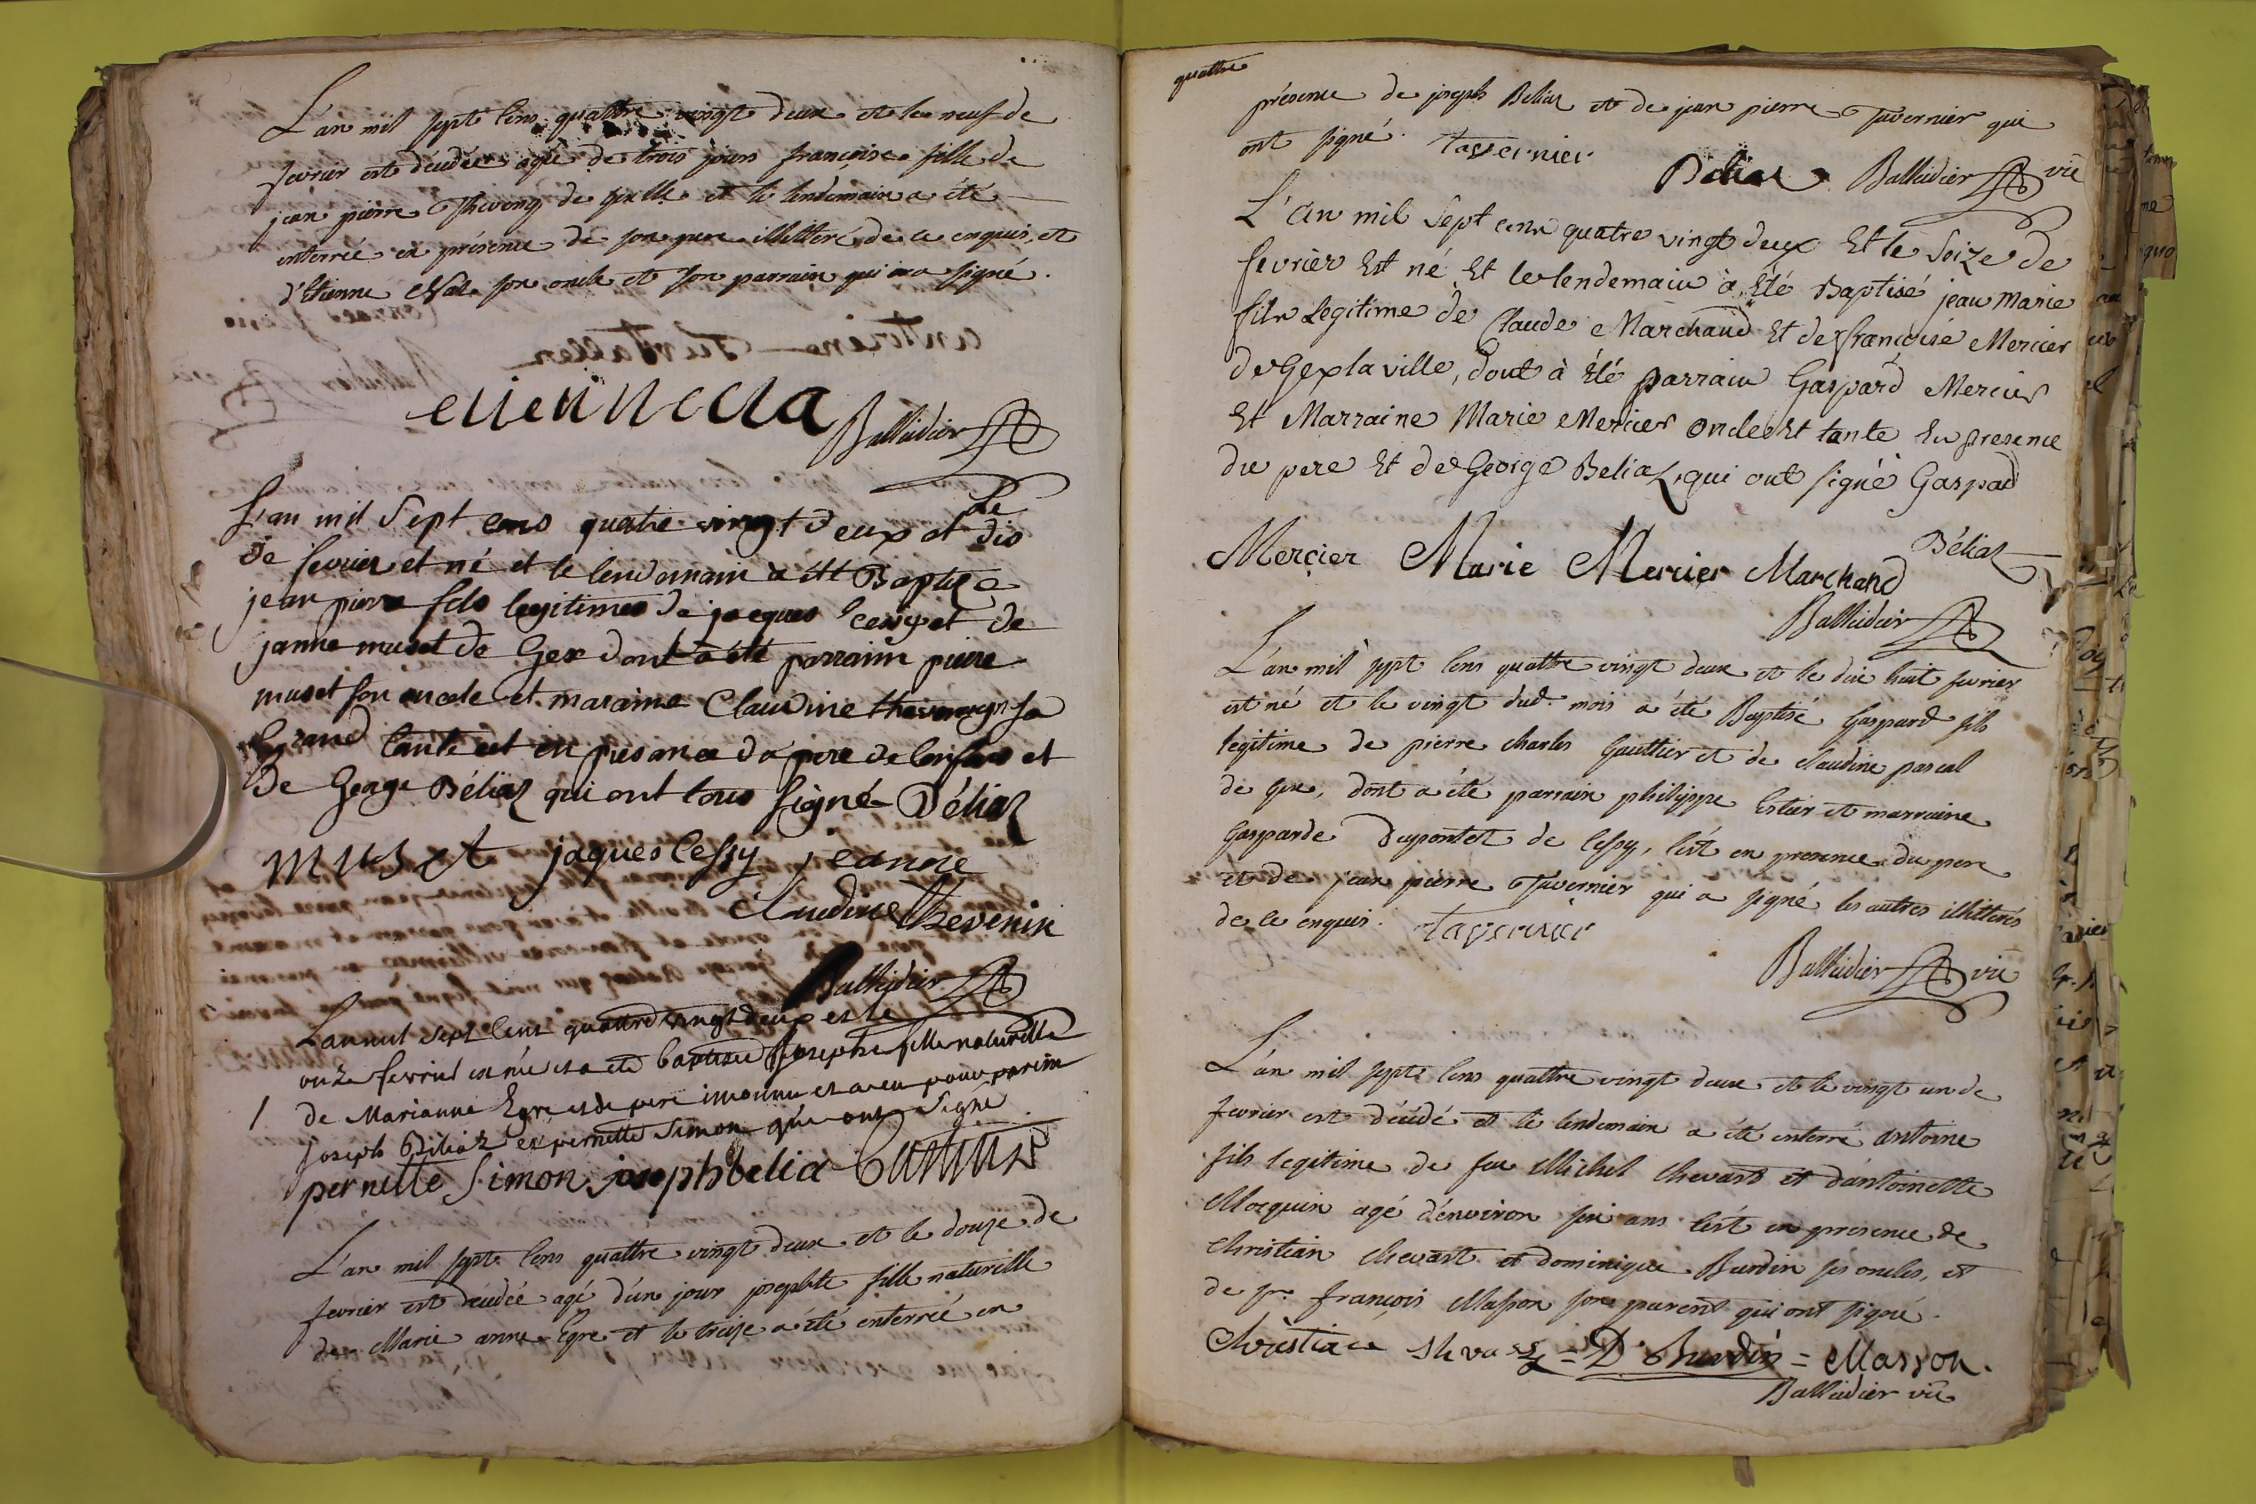 L'an mil sept cens quattre vingt deux et le neuf de
fevrier est décédée agée de trois jours françoise fille de
jean pierre Thevenin de et le lendemain a été
enterrée en présence de son pere illittéré de ce enquis, et
d'Etienne son oncle et son parrain qui a signé.
Balleidier
L'an mil Sept cens quatre vingt Deux et Le dis
de fevrier et né et le lendemain a été Baptizé
jean pierre fils legitimes de jacques Cessy et de
janne muset de Gex dont a été parrain pierre
muset son oncle et maraine Claudine thevenin sa
Grand tante et en presance du pere de lenfans et
De George Béliaz qui ont tous signé Béliaz
muset jaques Cessy jeanne
Claudine Thevenin
Balleidier
Lan mil sept cens quattre vingt deux et le
onze fevrier est née et a été baptizée Josephe fille naturelle
de Marianne Egre et de pere inconnu et a eu pour parein
Joseph Béliaz et pernette Simon qui ont signé
pernette Simon joseph belia
L'an mil sept cens quattre vingt deux et le douze de
fevrier est décédée agé d'un jour josephte fille naturelle
de Marie anne Egre et le treize a été enterrée en
quattre
présence de joseph Beliaz et de jean pierre Tavernier qui
ont signé. tavernier Béliaz Balleidier vic
L'an mil Sept cens quatre vingt deux Et le Seize de
fevrier Est né Et le lendemain à Eté Baptisé jean Marie
fils Legitime de Claude Marchand Et de françoise Mercier
de Gex la ville, dont à Eté parrain Gaspard Mercier
Et Marraine Marie Mercier oncle Et tante En presence
du pere Et de George Beliaz, qui ont signé Gaspard
Mercier Marie Mercier Marchand Béliaz
Balleidier
L'an mil sept cens quattre vingt deux et le dix huit fevrier
est né et le vingt dud. mois a été Baptisé Gaspard fils
legitime de pierre charles Gauttier et de claudine pascal
de Gex, dont a été parrain philippe Estier et marraine
Gasparde Dupontet de Cessy, c'est en presence du pere
et de jean pierre Tavernier qui a signé les autres illitterés
de ce enquis. tavernier
Balleidier vic
L'an mil sept cens quattre vingt deux et le vingt un de
fevrier est décédé et le lendemain a été enterré Antoine
fils legitime de feu Michel Chevast et d'antoinette
Mocquin agé d'environ six ans c'est en presence de
christian Chevast et dominique Burdin ses oncles, et
de sr. françois Masson son parent qui ont signé.
Christian = D Burdin = Masson.
Balleidier vic